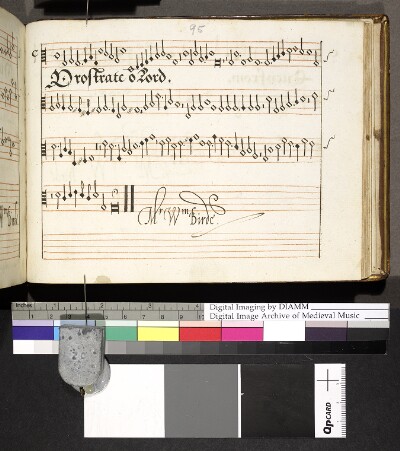 95
Prostrate o Lord.
Mr Wm Birde
Inches
Digital Imaging by DIAMM
Digital Image Archive of Medieval Music
QPCARD